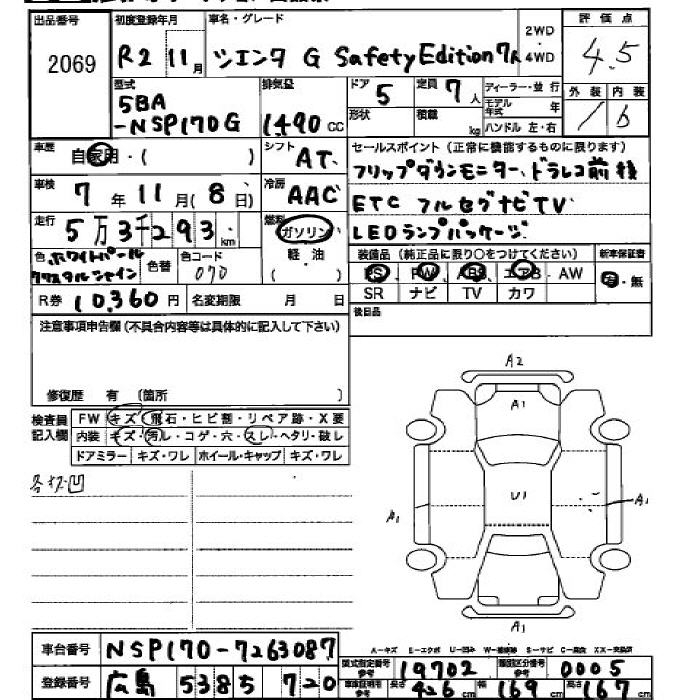 出品番号
2069
初度登録年月
R2 11月
車名・グレード
シエンタ G Safety Edition 7人
2WD
4WD
評価点
4.5
外装 内装
/ b
型式
5BA
-NSP170G
排気量
1490 cc
ドア
5
定員
7人
ディーラー・並行
モデル年式 年
形状
積載 kg
ハンドル 左・右
車歴
自家用・( )
シフト
AT
セールスポイント(正常に機能するものに限ります)
フリップダウンモニター、ドラレコ前後
ETC フルセグナビTV
LEDランプパッケージ
車検
7年11月(8日)
冷房
AAC
走行
5万3千293km
燃料
ガソリン
軽・油
( )
色 ホワイトパール
クリスタルシャイン
色替
色コード
070
装備品(純正品に限り○をつけてください)
PS・PW・ABS・エアB・AW
SR ナビ TV カワ
新車保証書
有・無
R券 10,360円
名変期限 月 日
後日品
注意事項申告欄(不具合内容等は具体的に記入して下さい)
修復歴 有 (箇所 )
検査員
記入欄
FW キズ・飛石・ヒビ割・リペア跡・X要
内装 キズ・汚ル・コゲ・穴・スレ・ヘタリ・破レ
ドアミラー キズ・ワレ ホイール・キャップ キズ・ワレ
A2
A1
U1
A1
A1
A1
A-キズ E-エクボ U-凹み W-補修跡 S-サビ C-腐食 XX-交換済
車台番号
NSP170-7263087
登録番号
広島 5385 720
型式指定番号
参考
19702
類別区分番号
参考
0005
車庫証明用
参考
長さ 426cm
幅 169cm
高さ 167cm